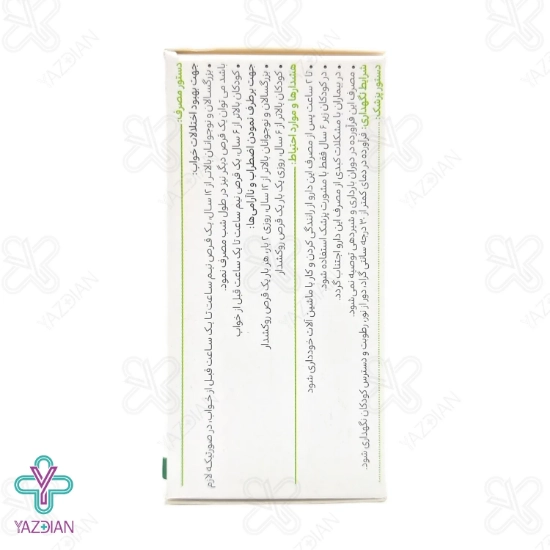 دستور مصرف:
جهت بهبود اختلالات خواب:
• بزرگسالان و نوجوانان بالاتر از ۱۲ سال، یک قرص نیم ساعت تا یک ساعت قبل از خواب، در صورتیکه لازم
باشد می توان یک قرص دیگر نیز در طول شب مصرف نمود.
• کودکان بالاتر از ۶ سال، یک قرص نیم ساعت تا یک ساعت قبل از خواب
جهت برطرف نمودن اضطراب و ناآرامی‌ها:
• بزرگسالان و نوجوانان بالاتر از ۱۲ سال، روزی ۲ بار، هر بار یک قرص روکشدار
• کودکان بالاتر از ۶ سال، روزی یک بار یک قرص روکشدار
هشدارها و موارد احتیاط:
• تا ۲ ساعت پس از مصرف این دارو از رانندگی کردن و کار با ماشین آلات خودداری شود.
• در کودکان زیر ۶ سال فقط با مشورت پزشک استفاده شود.
• در بیماران با مشکلات کبدی از مصرف این دارو اجتناب گردد.
• مصرف این فرآورده در دوران بارداری و شیردهی توصیه نمی‌شود.
شرایط نگهداری: فرآورده در دمای کمتر از ۳۰ درجه سانتی گراد، دور از نور، رطوبت و دسترس کودکان نگهداری شود.
دستور پزشک:
YAZDIAN